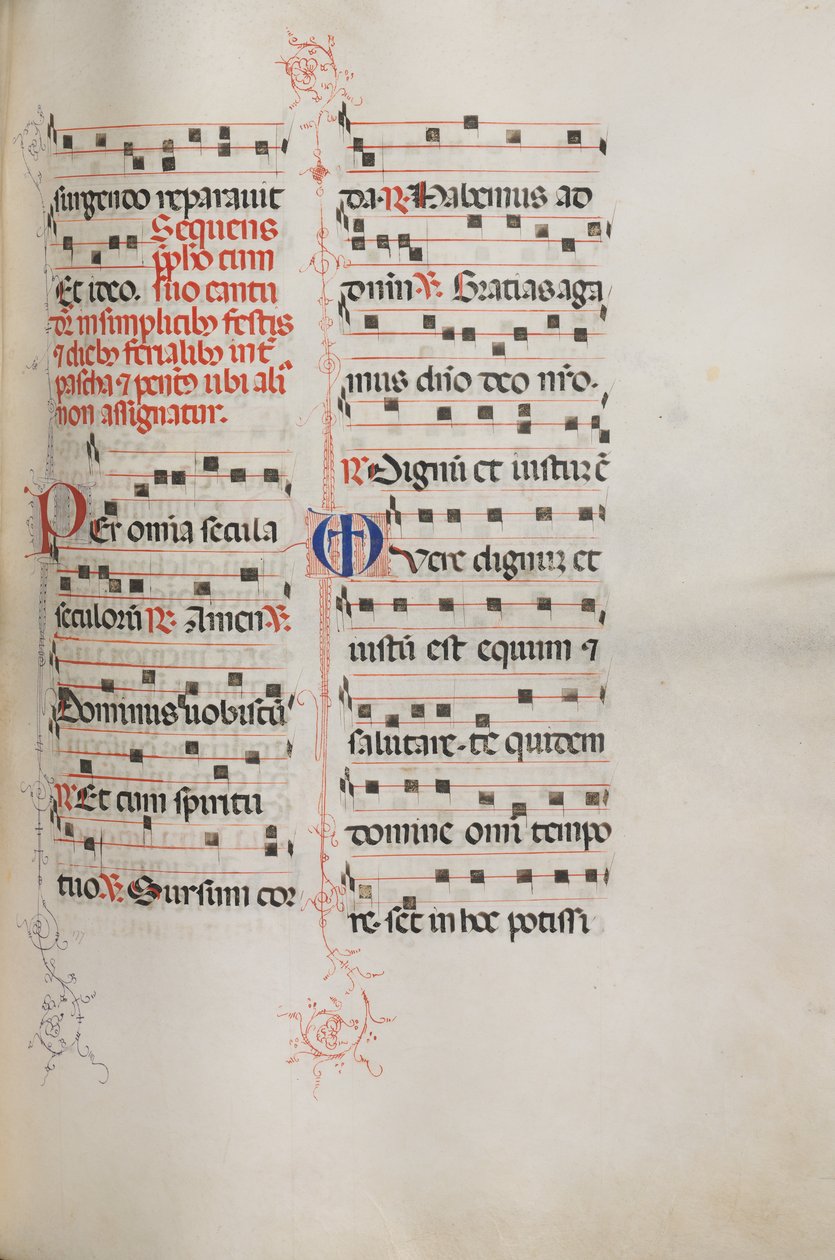 surgendo reparauit
Sequens
p̄fatio cum
Et ideo. suo cantu
dr̄ in simplicib⁊ festis
⁊ dieb⁊ ferialib⁊ int̄
pascha ⁊ pent̄ ubi ali
non assignatur.
PEr om̄ia secula
seculorū ℟. Amen ℣.
Dominus uobiscū
℟ Et cum spiritu
tuo ℣. Sursum cor
da. ℟. Habemus ad
dn̄m ℣. Gratias aga
mus dn̄o deo nr̄o.
℟ Dignū et iustuꝫ ē
Vere dignuꝫ et
iustū est equum ⁊
salutare. te quidem
domine omī tempo
re. set in hoc potissi